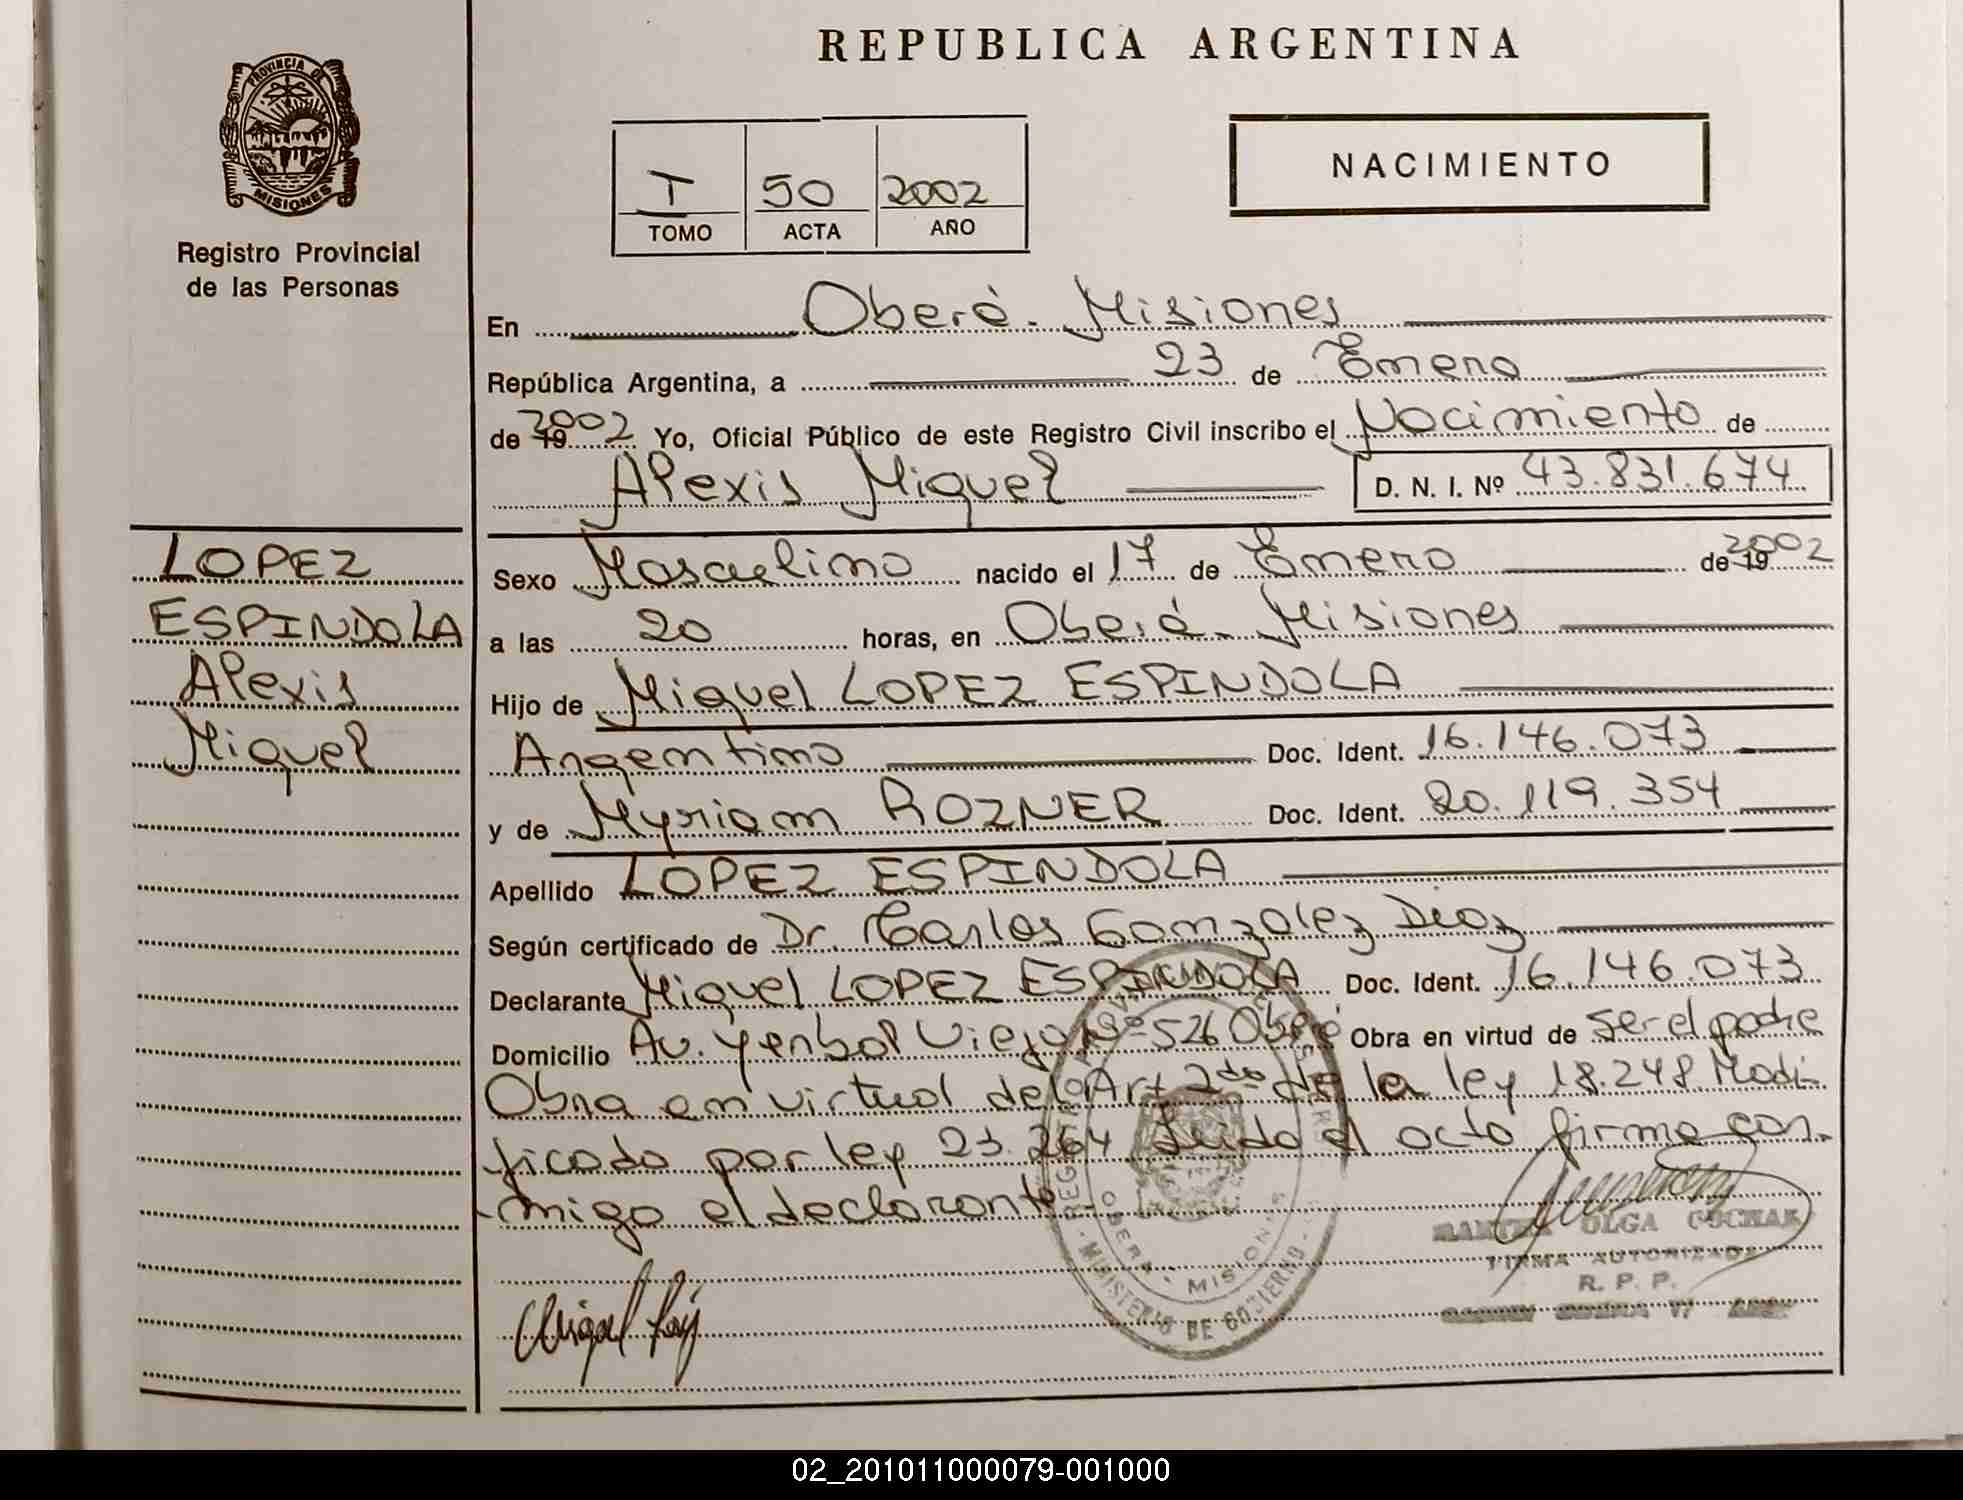 REPUBLICA ARGENTINA
PROVINCIA DE
MISIONES
Registro Provincial
de las Personas
T 50 2002
TOMO ACTA AÑO
NACIMIENTO
En Oberá - Misiones
República Argentina, a 23 de Enero
de 19 2002 Yo, Oficial Público de este Registro Civil inscribo el Nacimiento de
Alexis Miguel D. N. I. Nº 43.831.674
LOPEZ
ESPINDOLA
Alexis
Miguel
Sexo Masculino nacido el 17 de Enero de 19 2002
a las 20 horas, en Oberá - Misiones
Hijo de Miguel LOPEZ ESPINDOLA
Argentino Doc. Ident. 16.146.073
y de Myriam ROZNER Doc. Ident. 20.119.354
Apellido LOPEZ ESPINDOLA
Según certificado de Dr. Carlos Gonzalez Diaz
Declarante Miguel LOPEZ ESPINDOLA Doc. Ident. 16.146.073
Domicilio Av. Yerbal Viejo Nº 526 Oberá Obra en virtud de ser el padre
Obra en virtud del Art 2do de la ley 18.248 Modi-
ficado por ley 23.264 Leido el acto firma con-
migo el declarante
OLGA
FIRMA AUTORIZADA
R. P. P.
OBERA - MISIONES
MINISTERIO DE GOBIERNO
02_201011000079-001000